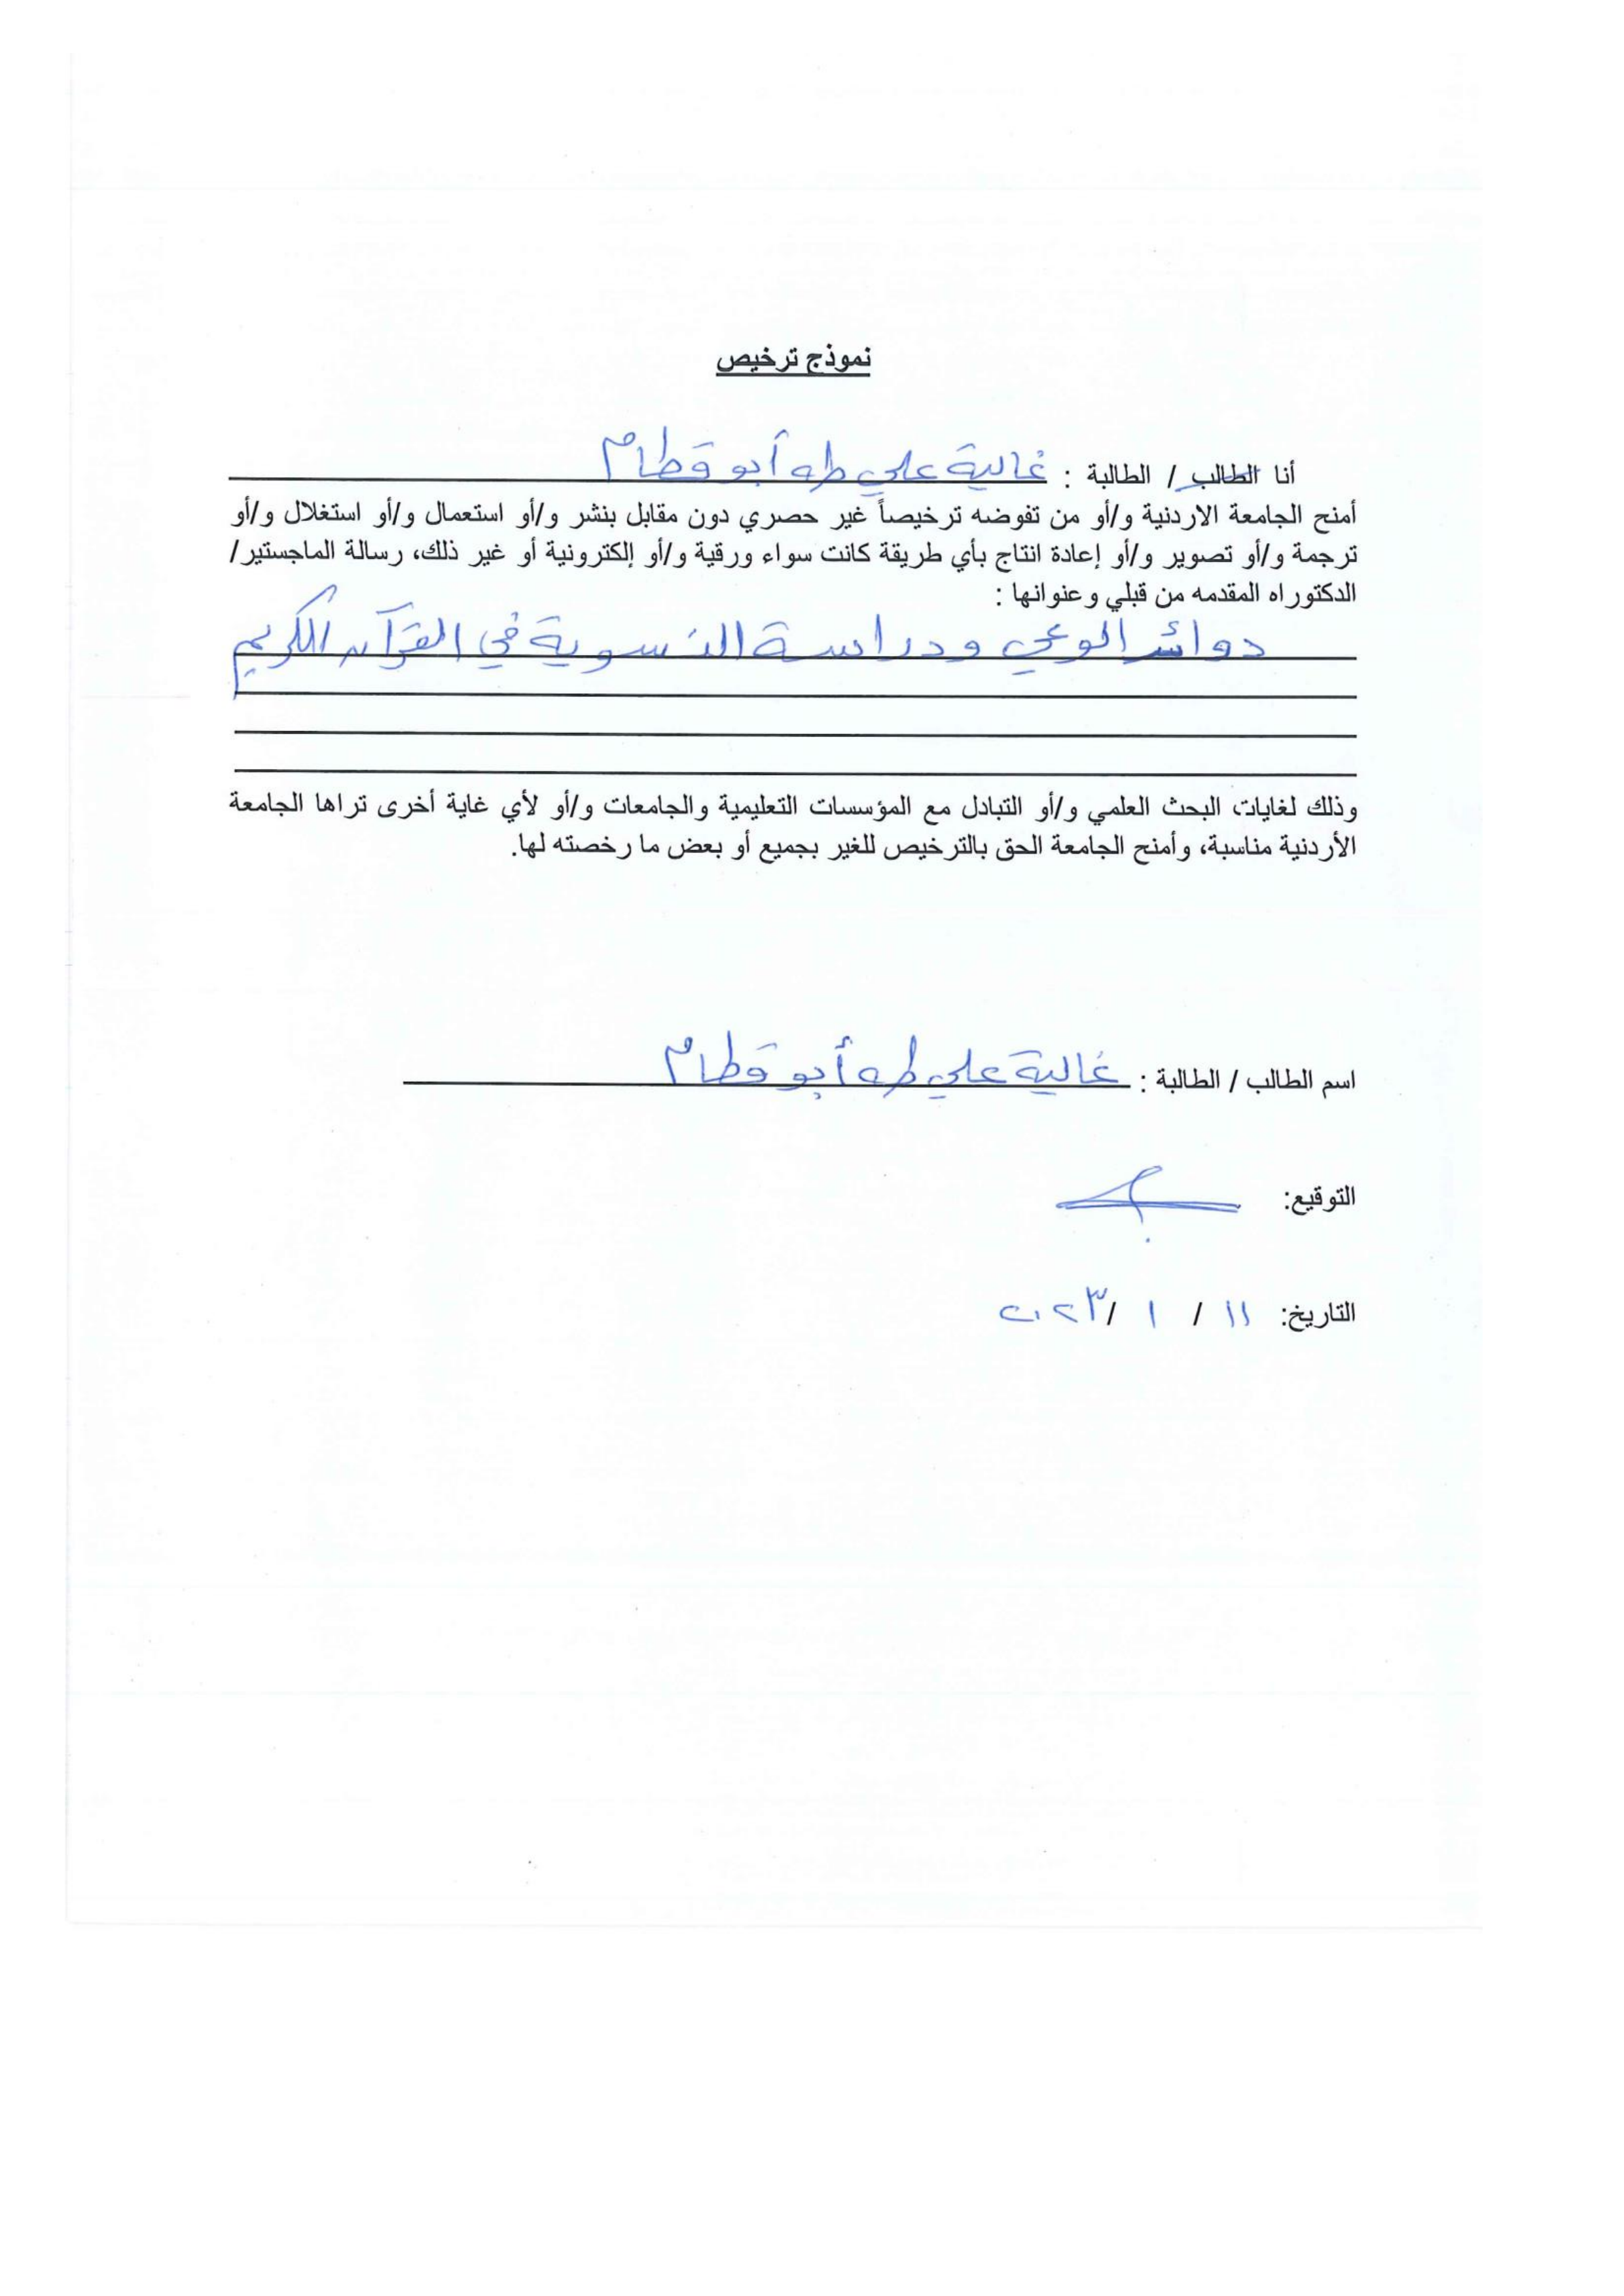 نموذج ترخيص
أنا الطالب / الطالبة : غالية علي طه أبو قطام
أمنح الجامعة الاردنية و/أو من تفوضه ترخيصاً غير حصري دون مقابل بنشر و/أو استعمال و/أو استغلال و/أو
ترجمة و/أو تصوير و/أو إعادة انتاج بأي طريقة كانت سواء ورقية و/أو إلكترونية أو غير ذلك، رسالة الماجستير/
الدكتوراه المقدمه من قبلي وعنوانها :
دوائر الوعي ودراسة النسوية في القرآن الكريم
وذلك لغايات البحث العلمي و/أو التبادل مع المؤسسات التعليمية والجامعات و/أو لأي غاية أخرى تراها الجامعة
الأردنية مناسبة، وأمنح الجامعة الحق بالترخيص للغير بجميع أو بعض ما رخصته لها.
اسم الطالب / الطالبة : غالية علي طه أبو قطام
التوقيع:
التاريخ: ١١ / ١ /٢٠٢٣